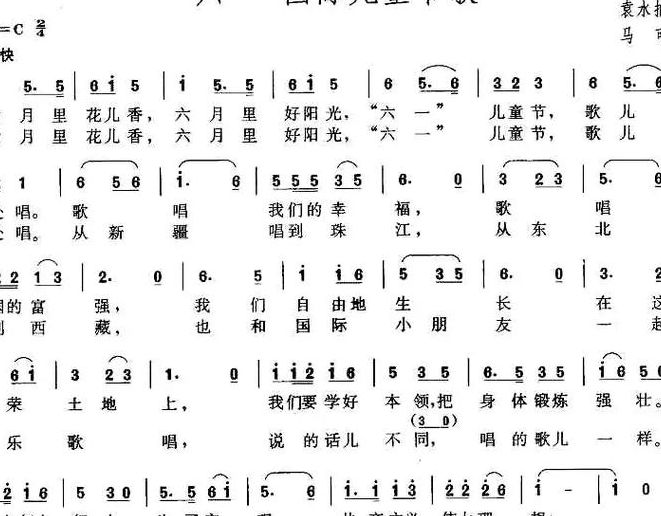 袁水拍
=C 2/4
马可
快
5. 5 | 6 i 5 | i 5. 5 | 6 i 5 | 6 5. 6 | 3 2 3 | 6 5. 6
月里 花儿香, 六月里 好阳光, “六一” 儿童节, 歌儿
月里 花儿香, 六月里 好阳光, “六一” 儿童节, 歌儿
1 | 6 5 6 | i. 6 | 5 5 5 3 5 | 6. 0 | 3 2 3 | 5. 6
唱。 歌 唱 我们的幸 福, 歌 唱
唱。 从新 疆 唱到珠 江, 从东 北
2 1 3 | 2. 0 | 6. 5 | i i 6 | 5 3 5 | 6. 0 | 3. 2
的富 强, 我们 自由地 生 长 在这
西 藏, 也和 国际 小朋 友 一起
6 i | 3 2 3 | 1. 0 | i i 2 i 6 | 5 3 5 | 6. 5 3 5 | i 6 5
荣 土地 上, 我们要学好 本领,把 身体锻炼 强壮。
(3 0)
乐 歌 唱, 说的话儿 不同, 唱的歌儿 一样。
2 i 6 | 5 3 0 | 5. 5 6 i | 5. 6 | i. i i 3 | 2 2 2 6 | i - | i 0